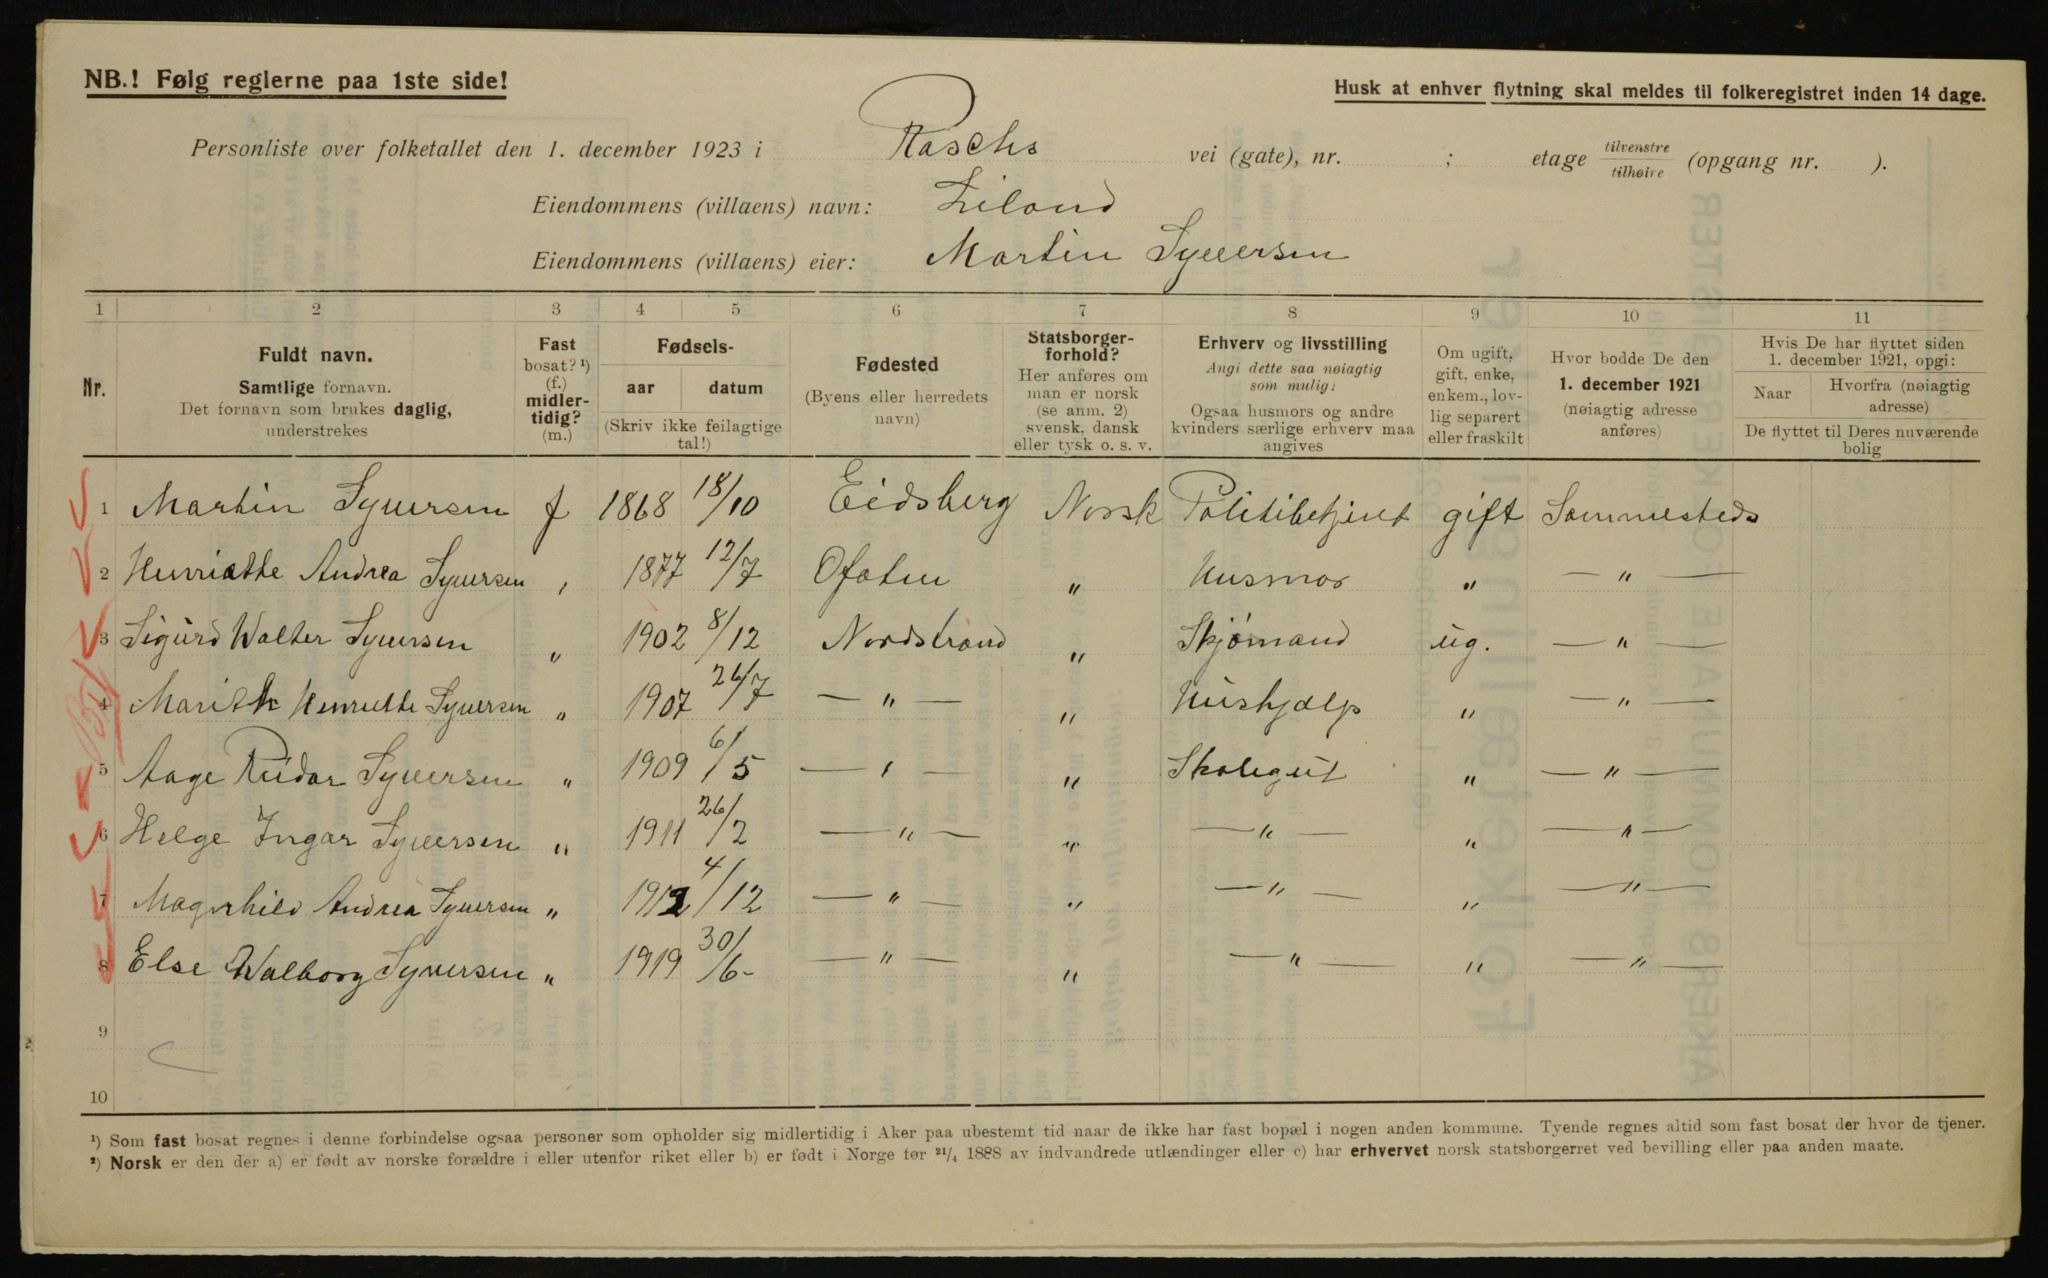 NB.! Følg reglerne paa 1ste side!
Husk at enhver flytning skal meldes til folkeregistret inden 14 dage.
Personliste over folketallet den 1. december 1923 i Raschs vei (gate), nr. ; etage tilvenstre tilhøire (opgang nr. ).
Eiendommens (villaens) navn: Liland
Eiendommens (villaens) eier: Martin Syversen
1 2 3 4 5 6 7 8 9 10 11
Nr.
Fuldt navn.
Samtlige fornavn.
Det fornavn som brukes daglig,
understrekes
Fast
bosat? ¹)
(f.)
midler-
tidig?
(m.)
Fødsels-
aar datum
(Skriv ikke feilagtige
tal!)
Fødested
(Byens eller herredets
navn)
Statsborger-
forhold?
Her anføres om
man er norsk
(se anm. 2)
svensk, dansk
eller tysk o. s. v.
Erhverv og livsstilling
Angi dette saa nøiagtig
som mulig:
Ogsaa husmors og andre
kvinders særlige erhverv maa
angives
Om ugift,
gift, enke,
enkem., lov-
lig separert
eller fraskilt
Hvor bodde De den
1. december 1921
(nøiagtig adresse
anføres)
Hvis De har flyttet siden
1. december 1921, opgi:
Naar Hvorfra (nøiagtig
adresse)
De flyttet til Deres nuværende
bolig
1 Martin Syversen f 1868 18/10 Eidsberg Norsk Politibetjent gift Sammesteds
2 Henriette Andrea Syversen " 1877 12/7 Ofoten " Husmor " — " —
3 Sigurd Walter Syversen " 1902 8/12 Nordstrand " Skjømand ug. — " —
4 Marith Henriette Syversen " 1907 26/7 — " — " Hushjælp " — " —
5 Aage Reidar Syversen " 1909 6/5 — " — " Skolegut " — " —
6 Helge Ingar Syversen " 1911 26/2 — " — " — " — " — " —
7 Magnhild Andrea Syversen " 1912 4/12 — " — " — " — " — " —
8 Else Walborg Syversen " 1919 30/6- — " — " — " — " — " —
9
10
¹) Som fast bosat regnes i denne forbindelse ogsaa personer som opholder sig midlertidig i Aker paa ubestemt tid naar de ikke har fast bopæl i nogen anden kommune. Tyende regnes altid som fast bosat der hvor de tjener.
²) Norsk er den der a) er født av norske forældre i eller utenfor riket eller b) er født i Norge før 21/4 1888 av indvandrede utlændinger eller c) har erhvervet norsk statsborgerret ved bevilling eller paa anden maate.